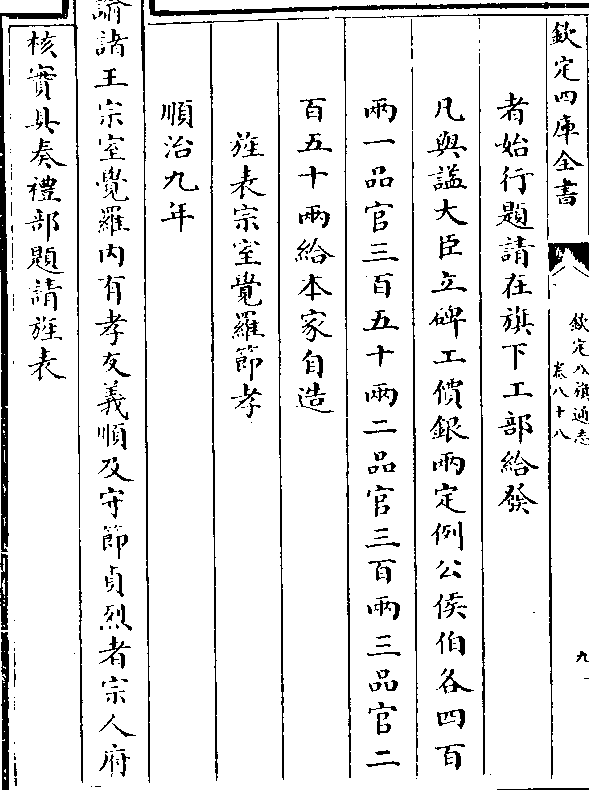 欽定四庫全書
欽定八旗通志
卷八十八
九
者始行題請在旗下工部給發
凡與諡大臣立碑工價銀兩定例公侯伯各四百
兩一品官三百五十兩二品官三百兩三品官二
百五十兩給本家自造
旌表宗室覺羅節孝
順治九年
諭諸王宗室覺羅内有孝友義順及守節貞烈者宗人府
核實具奏禮部題請旌表